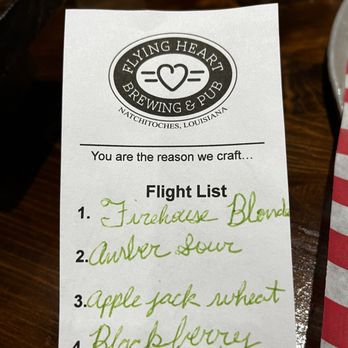 FLYING HEART
BREWING & PUB
NATCHITOCHES, LOUISIANA
You are the reason we craft...
Flight List
1. Firehouse Blonde
2. Amber Sour
3. Apple jack wheat
4 Blackberry